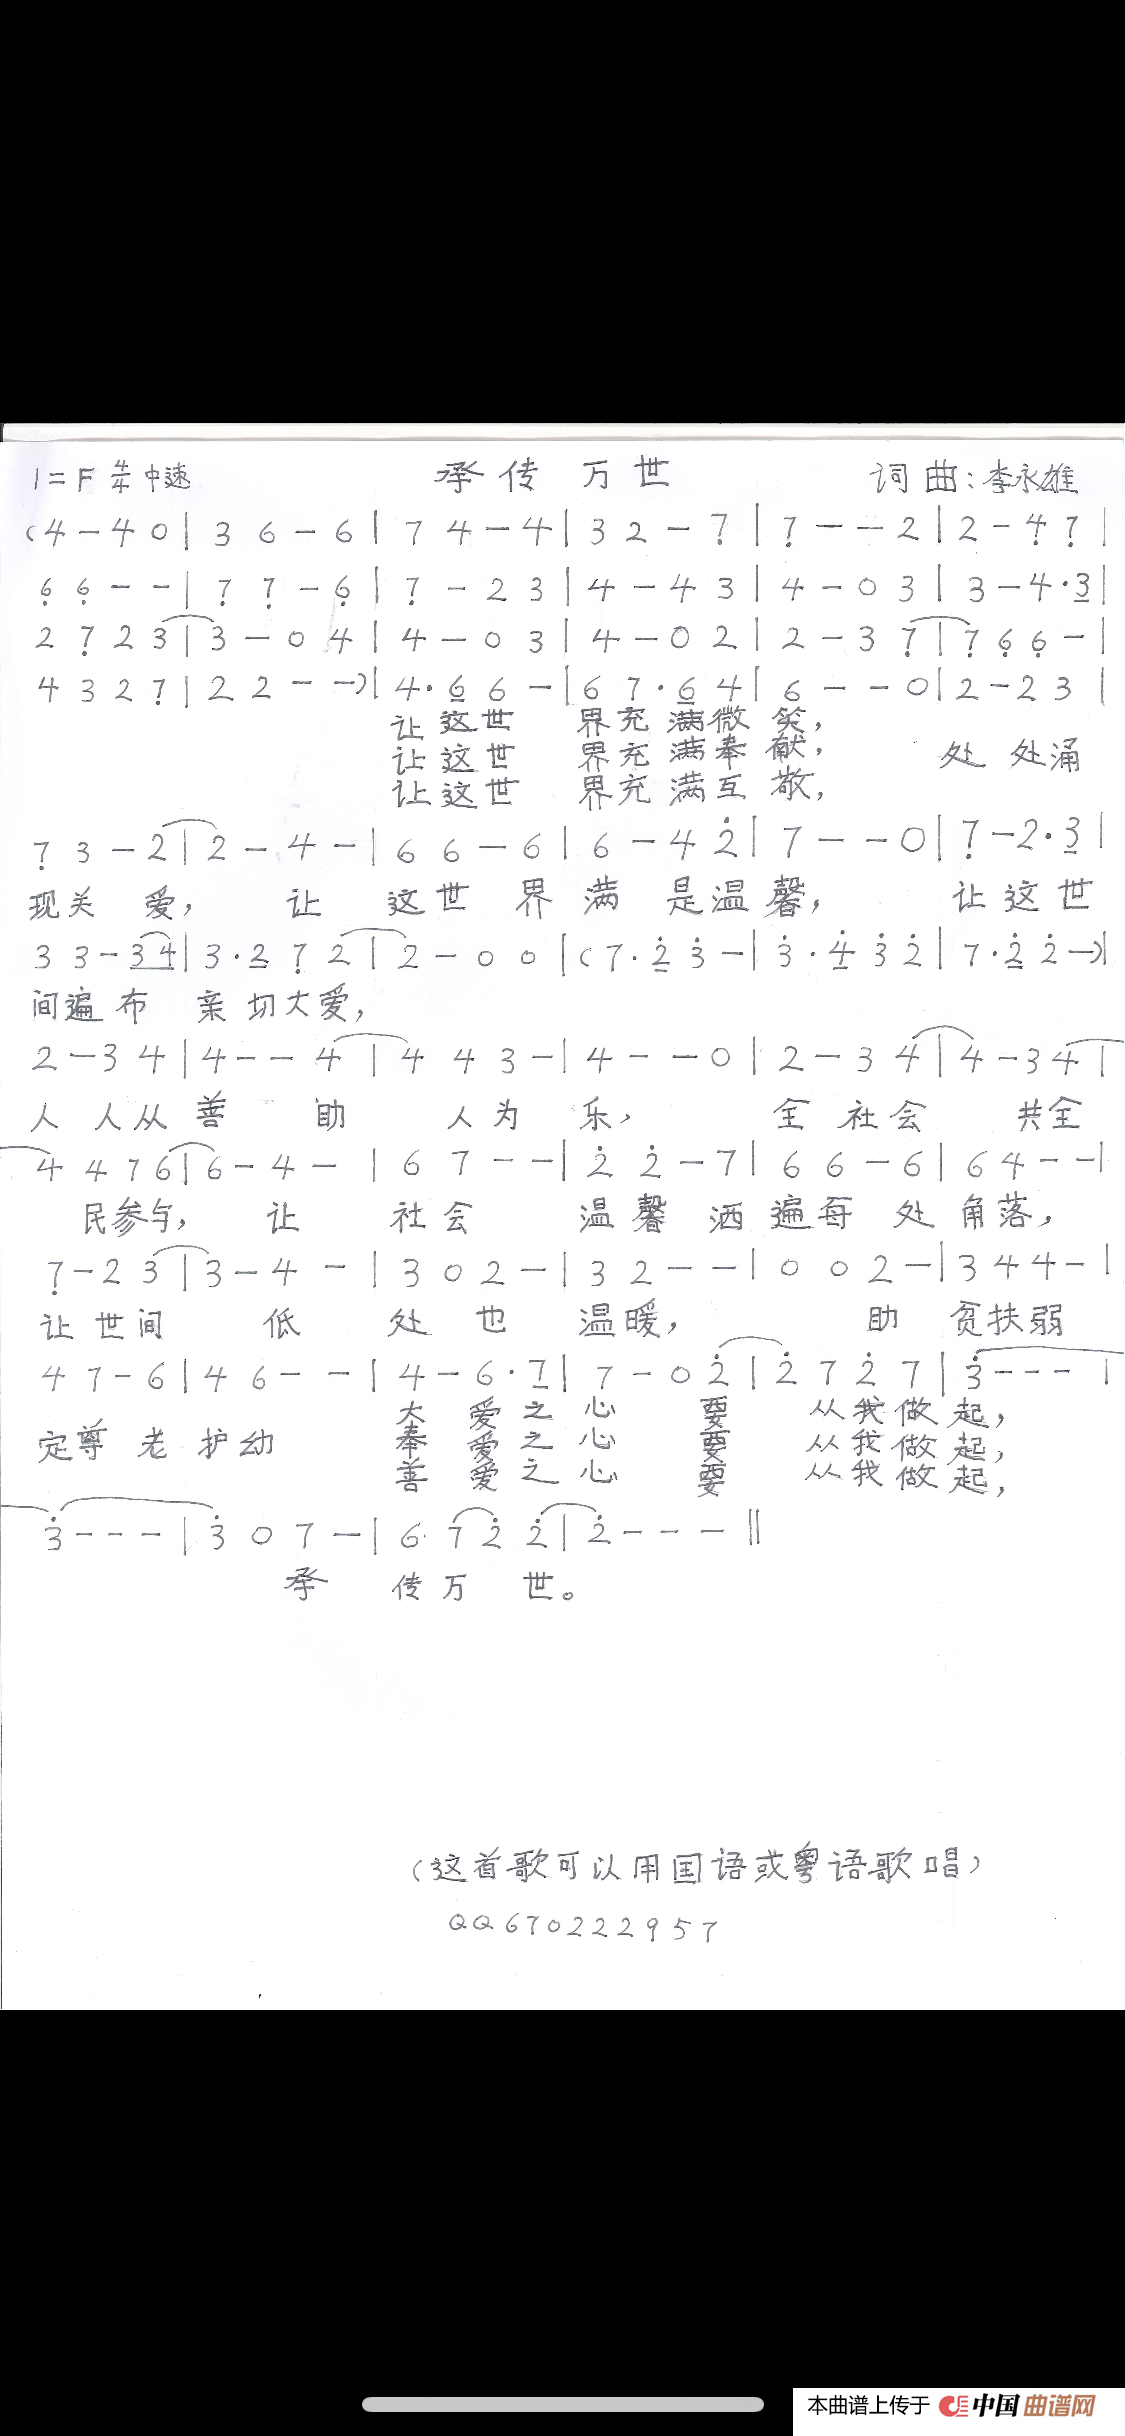 1=F 4/4 中速 承传万世 词曲:李永雄
(4 - 4 0 | 3 6 - 6 | 7 4 - 4 | 3 2 - 7̣ | 7̣ - - 2 | 2 - 4̣ 7̣ |
6̣ 6̣ - - | 7̣ 7̣ - 6̣ | 7̣ - 2 3 | 4 - 4 3 | 4 - 0 3 | 3 - 4·3̲ |
2 7̣ 2 3 | 3 - 0 4 | 4 - 0 3 | 4 - 0 2 | 2 - 3 7̣ | 7̣ 6̣ 6̣ - |
4 3 2 7̣ | 2 2 - -) | 4·6̲ 6 - | 6 7·6̲ 4 | 6 - - 0 | 2 - 2 3 |
让这世 界充满微笑,
让这世 界充满奉献, 处处涌
让这世 界充满互敬,
7̣ 3 - 2 | 2 - 4 - | 6 6 - 6 | 6 - 4 2̇ | 7 - - 0 | 7̣ - 2·3̲ |
现关爱, 让 这世界满是温馨, 让这世
3 3 - 3̲ 4̲ | 3·2̲ 7̣ 2 | 2 - 0 0 | (7·2̲̇ 3̇ - | 3̇·4̲̇ 3̇ 2̇ | 7·2̲̇ 2̇ -) |
间遍布 亲切大爱,
2 - 3 4 | 4 - - 4 | 4 4 3 - | 4 - - 0 | 2 - 3 4 | 4 - 3 4 |
人人从善 助 人为乐, 全社会 共全
4 4 7 6 | 6 - 4 - | 6 7 - - | 2̇ 2̇ - 7 | 6 6 - 6 | 6 4 - - |
民参与, 让 社会 温馨洒遍每处角落,
7̣ - 2 3 | 3 - 4 - | 3 0 2 - | 3 2 - - | 0 0 2 - | 3 4 4 - |
让世间 低 处也 温暖, 助 贫扶弱
4 7 - 6 | 4 6 - - | 4 - 6·7̲ | 7 - 0 2̇ | 2̇ 7 2̇ 7 | 3̇ - - - |
大爱之心 要 从我做起,
定尊老护幼 奉爱之心 要 从我做起,
善爱之心 要 从我做起,
3̇ - - - | 3̇ 0 7 - | 6 7 2̇ 2̇ | 2̇ - - - ‖
承 传万世。
(这首歌可以用国语或粤语歌唱)
QQ670222957
本曲谱上传于 中国曲谱网